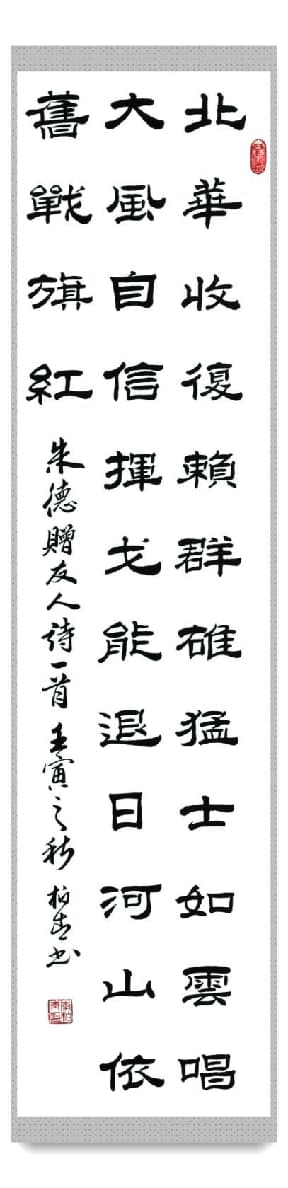 北華收復賴群雄猛士如雲唱
大風自信揮戈能退日河山依
舊戰旗紅
朱德贈友人詩一首 壬寅之秋 柏